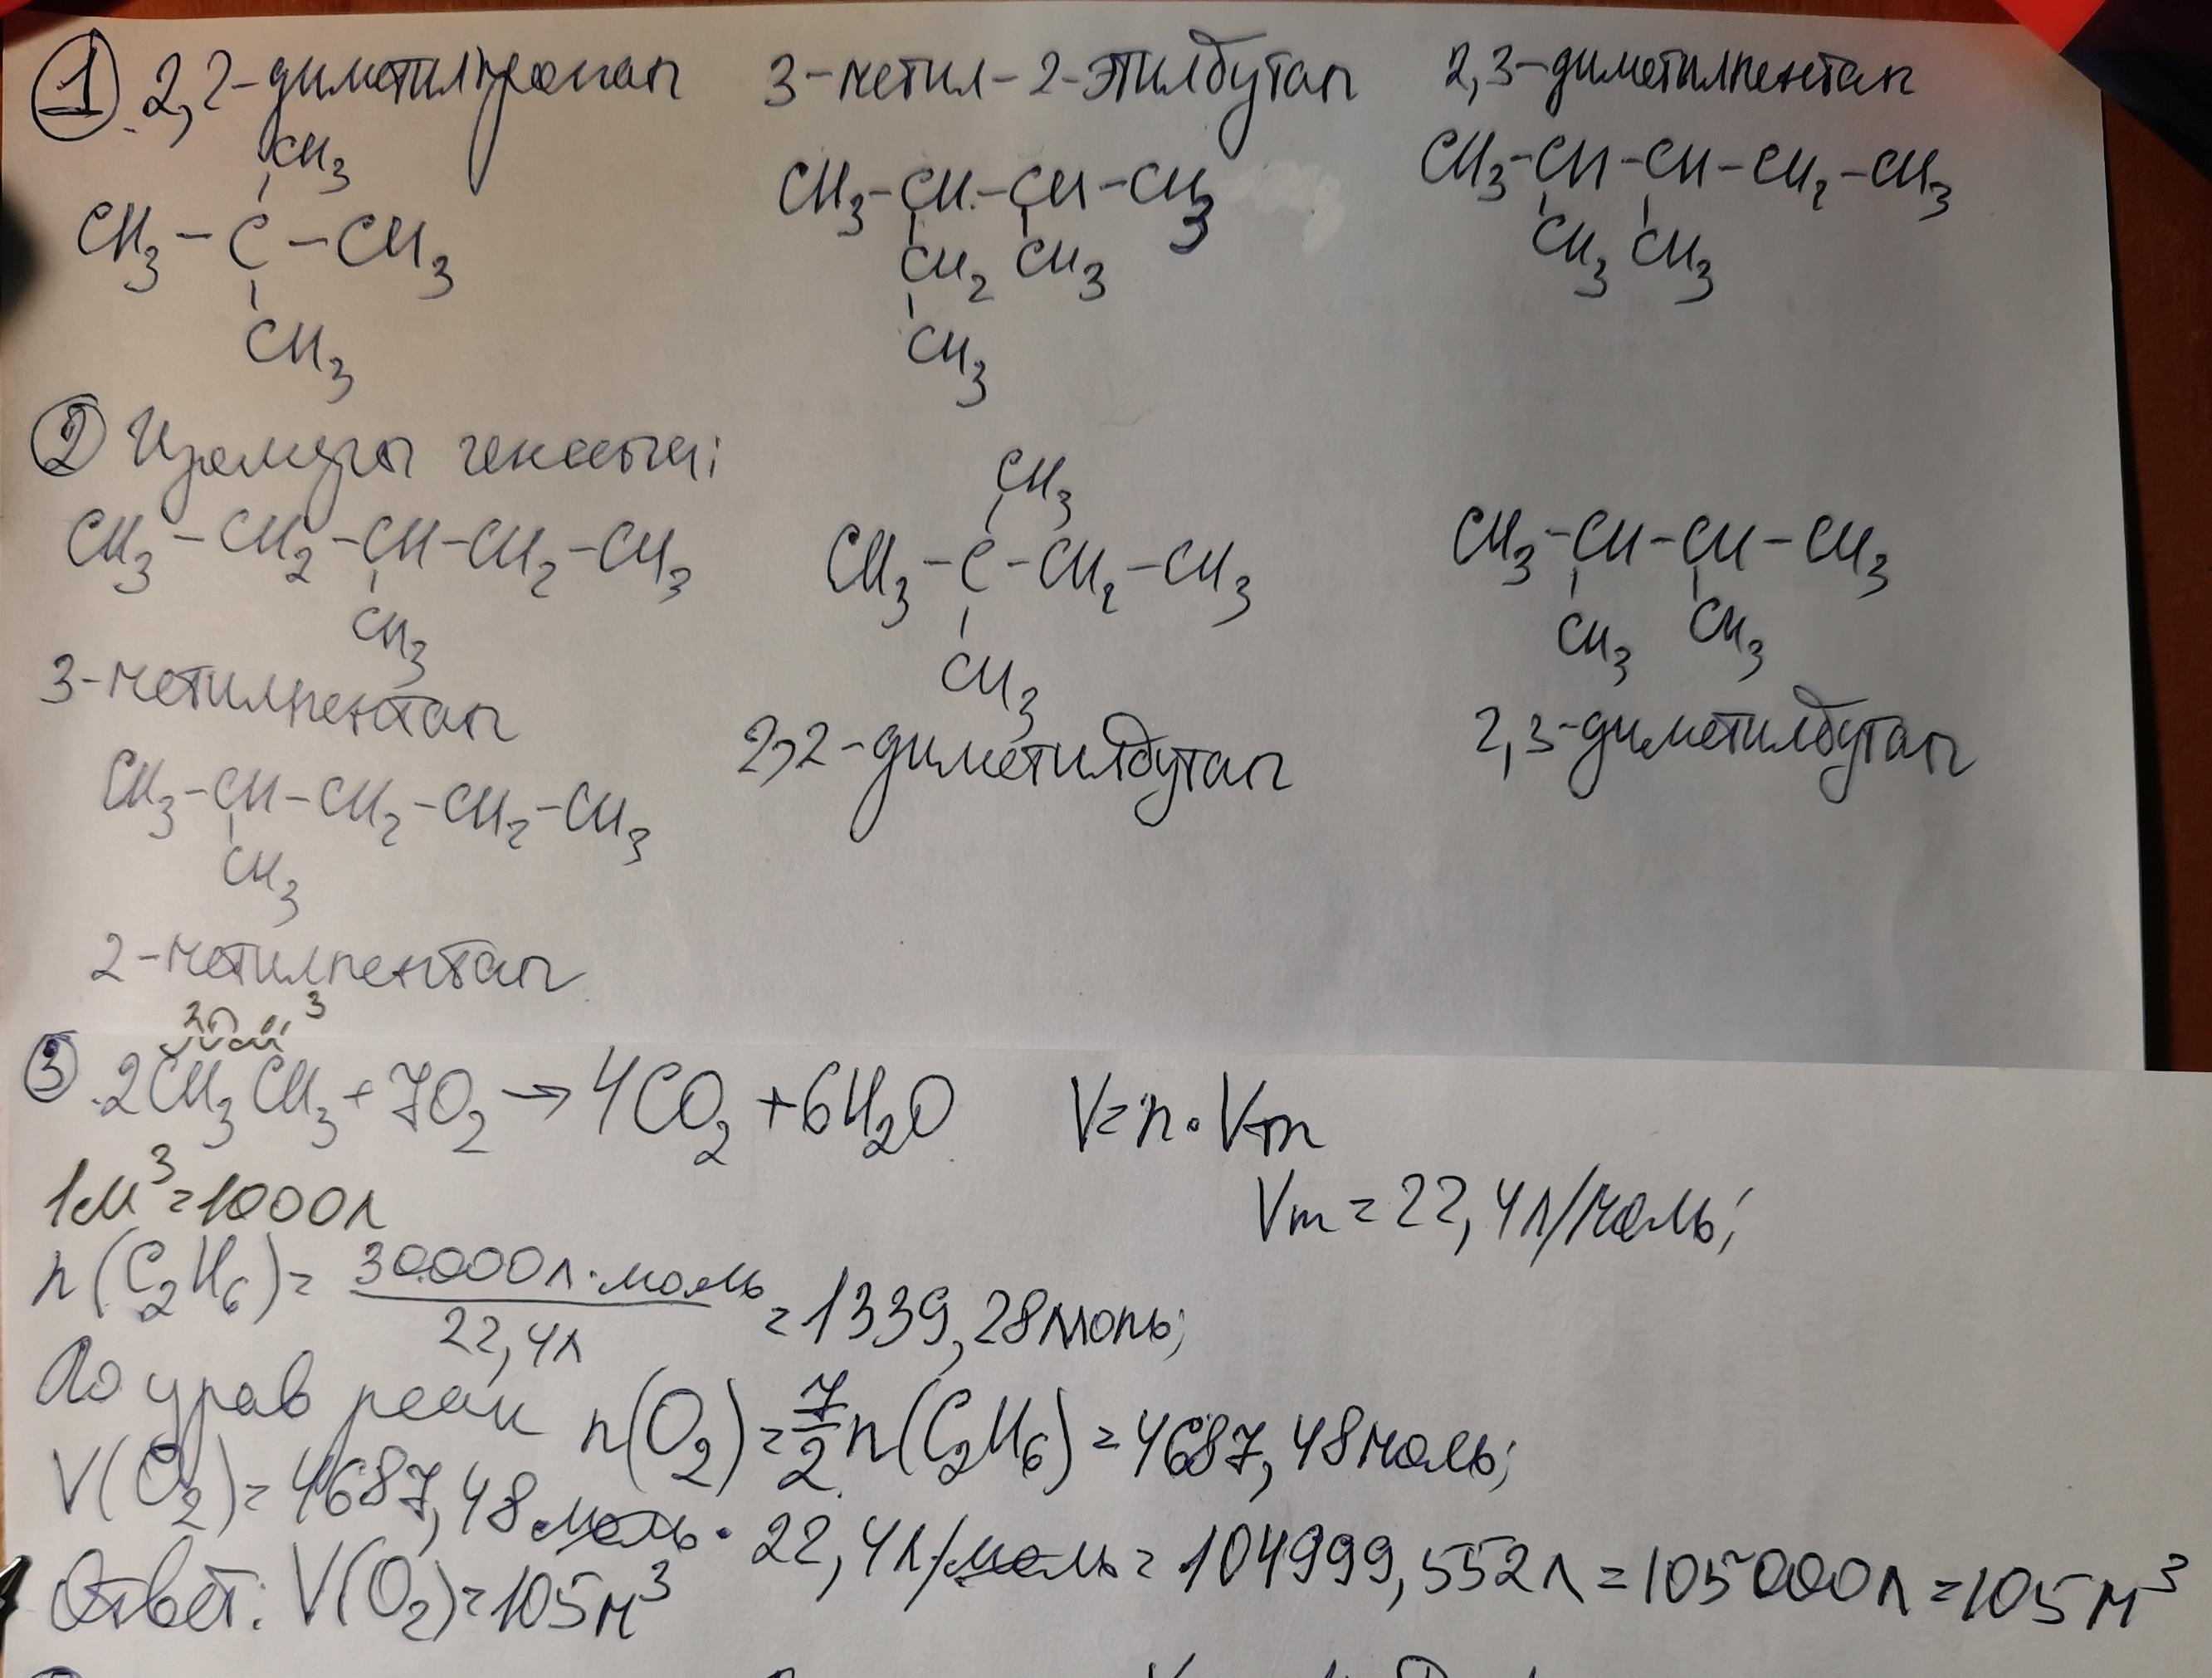 1 2,2-диметилпропан 3-метил-2-этилбутан 2,3-диметилпентан
CH3
CH3-CH-CH-CH3 CH3-CH-CH-CH2-CH3
CH3-C-CH3 CH2 CH3 CH3 CH3
CH3 CH3
2 Изомеры гексана:
CH3
CH3-CH2-CH-CH2-CH3 CH3-C-CH2-CH3 CH3-CH-CH-CH3
CH3 CH3 CH3 CH3
3-метилпентан 2,2-диметилбутан 2,3-диметилбутан
CH3-CH-CH2-CH2-CH3
CH3
2-метилпентан
30м³
3 2CH3CH3+7O2→4CO2+6H2O V=n·Vm
1м³=1000л Vm=22,4л/моль;
n(C2H6)=30000л·моль/22,4л=1339,28моль;
По урав реак n(O2)=7/2n(C2H6)=4687,48моль;
V(O2)=4687,48моль·22,4л/моль=104999,552л=105000л=105м³
Ответ: V(O2)=105м³